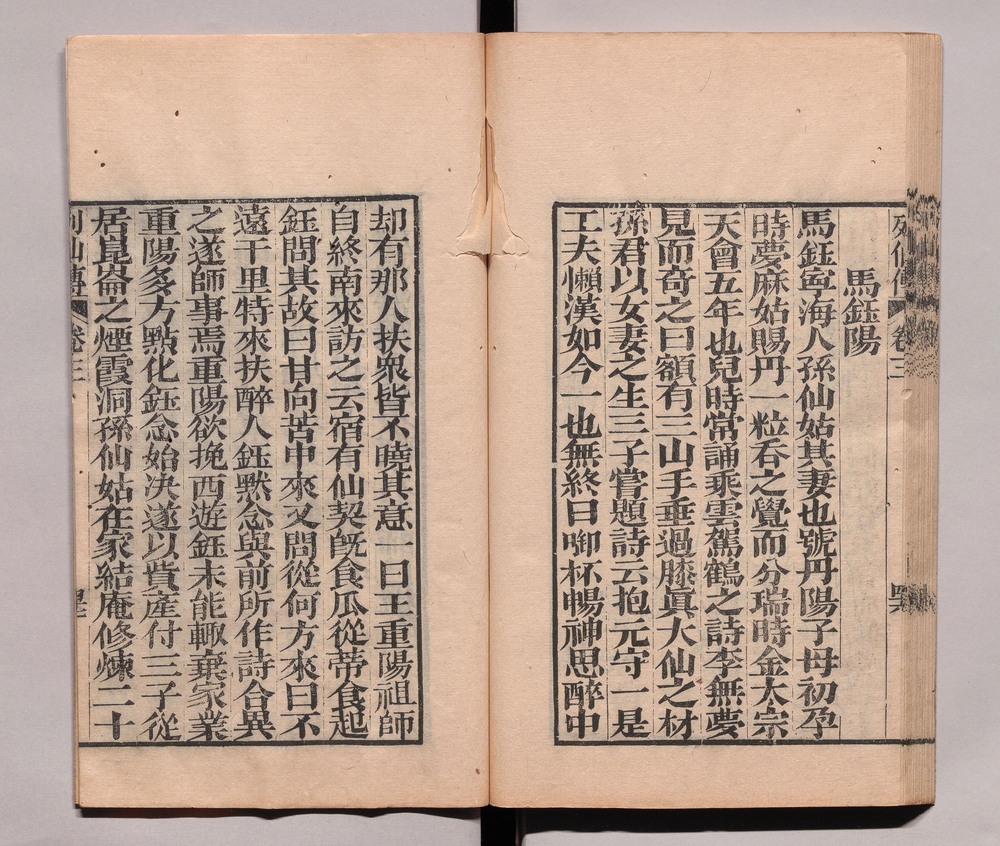 列仙傳 卷三
馬鈺陽
馬鈺寧海人孫仙姑其妻也號丹陽子母初孕
時夢麻姑賜丹一粒吞之覺而分瑞時金太宗
天會五年也兒時常誦乘雲駕鶴之詩李無夢
見而奇之曰額有三山手垂過膝眞大仙之材
孫君以女妻之生三子嘗題詩云抱元守一是
工夫懶漢如今一也無終日啣杯暢神思醉中
却有那人扶衆皆不曉其意一日王重陽祖師
自終南來訪之云宿有仙契旣食瓜從蒂食起
鈺問其故曰甘向苦中來又問從何方來曰不
遠千里特來扶醉人鈺默念與前所作詩合異
之遂師事焉重陽欲挽西遊鈺未能輙棄家業
重陽多方點化鈺念始决遂以貲産付三子從
居崑崙之煙霞洞孫仙姑在家結庵修煉二十
列仙傳 卷三